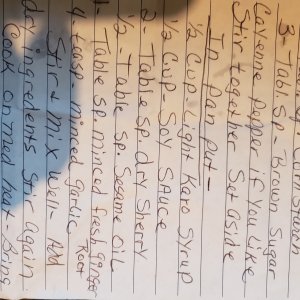 Corn Starch
3- Tabl sp- Brown Sugar
Cayenne Pepper if you Like
Stir together Set aside
In pan put-
1/2 Cup Light Karo Syrup
1/3 Cup- Soy Sauce
2- Table sp dry Sherry
1/2- Table sp. Sesame Oil
Table sp. minced fresh ginger
Root
4- teasp minced garlic
Stir & mix well- Add
dry ingredients Stir again
Cook on med heat- Bring